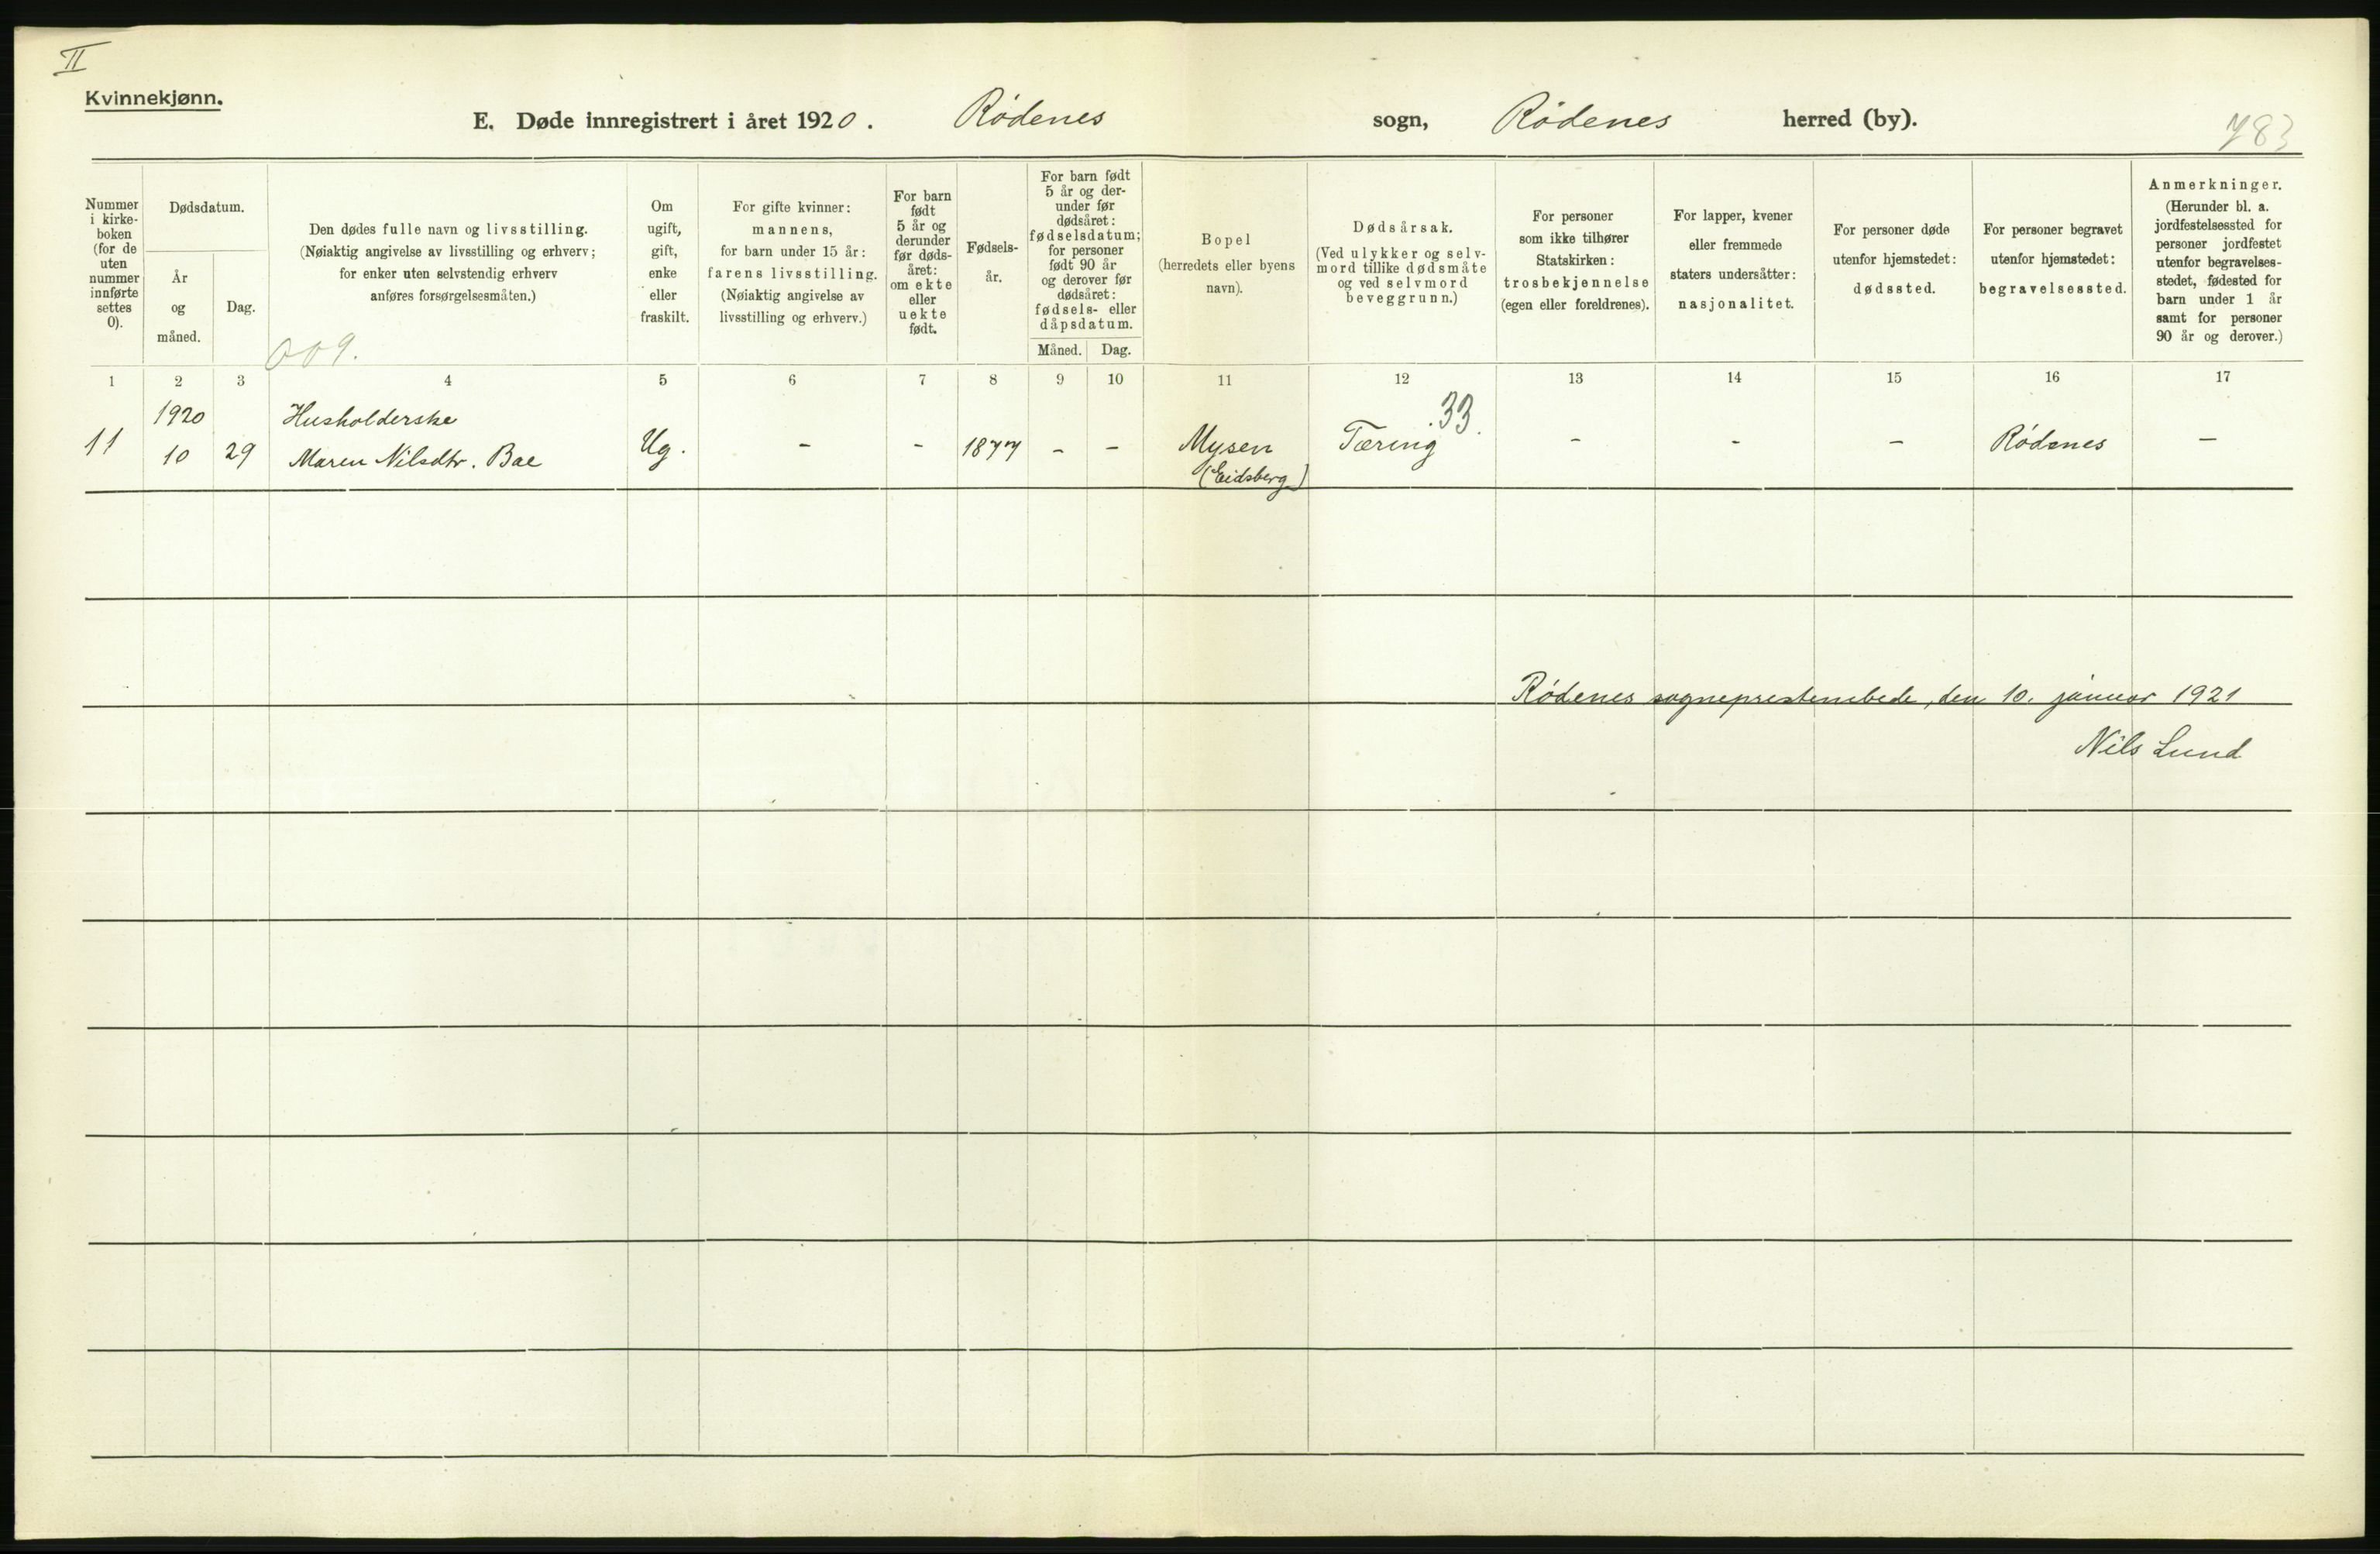 II
Kvinnekjønn.
E. Døde innregistrert i året 1920. Rödenes sogn, Rödenes herred (by).
783
Nummer
i kirke-
boken
(for de
uten
nummer
innførte
settes
0).
Dødsdatum.
År
og
måned.
Dag.
Den dødes fulle navn og livsstilling.
(Nøiaktig angivelse av livsstilling og erhverv;
for enker uten selvstendig erhverv
anføres forsørgelsesmåten.)
009.
Om
ugift,
gift,
enke
eller
fraskilt.
For gifte kvinner:
mannens,
for barn under 15 år:
farens livsstilling.
(Nøiaktig angivelse av
livsstilling og erhverv.)
For barn
født
5 år og
derunder
før døds-
året:
om ekte
eller
uekte
født.
Fødsels-
år.
For barn født
5 år og der-
under før
dødsåret:
fødselsdatum;
for personer
født 90 år
og derover før
dødsåret:
fødsels- eller
dåpsdatum.
Måned. Dag.
Bopel
(herredets eller byens
navn).
Dødsårsak.
(Ved ulykker og selv-
mord tillike dødsmåte
og ved selvmord
beveggrunn.)
For personer
som ikke tilhører
Statskirken:
trosbekjennelse
(egen eller foreldrenes).
For lapper, kvener
eller fremmede
staters undersåtter:
nasjonalitet.
For personer døde
utenfor hjemstedet:
dødssted.
For personer begravet
utenfor hjemstedet:
begravelsessted.
Anmerkninger.
(Herunder bl. a.
jordfestelsessted for
personer jordfestet
utenfor begravelses-
stedet, fødested for
barn under 1 år
samt for personer
90 år og derover.)
1 2 3 4 5 6 7 8 9 10 11 12 13 14 15 16 17
1920 Husholderske .33.
11 10 29 Maren Nilsdtr. Bae Ug. - - 1877 - - Mysen Tæring - - - Rödenes -
(Eidsberg)
Rödenes sogneprestembede, den 10. januar 1921
Nils Lund